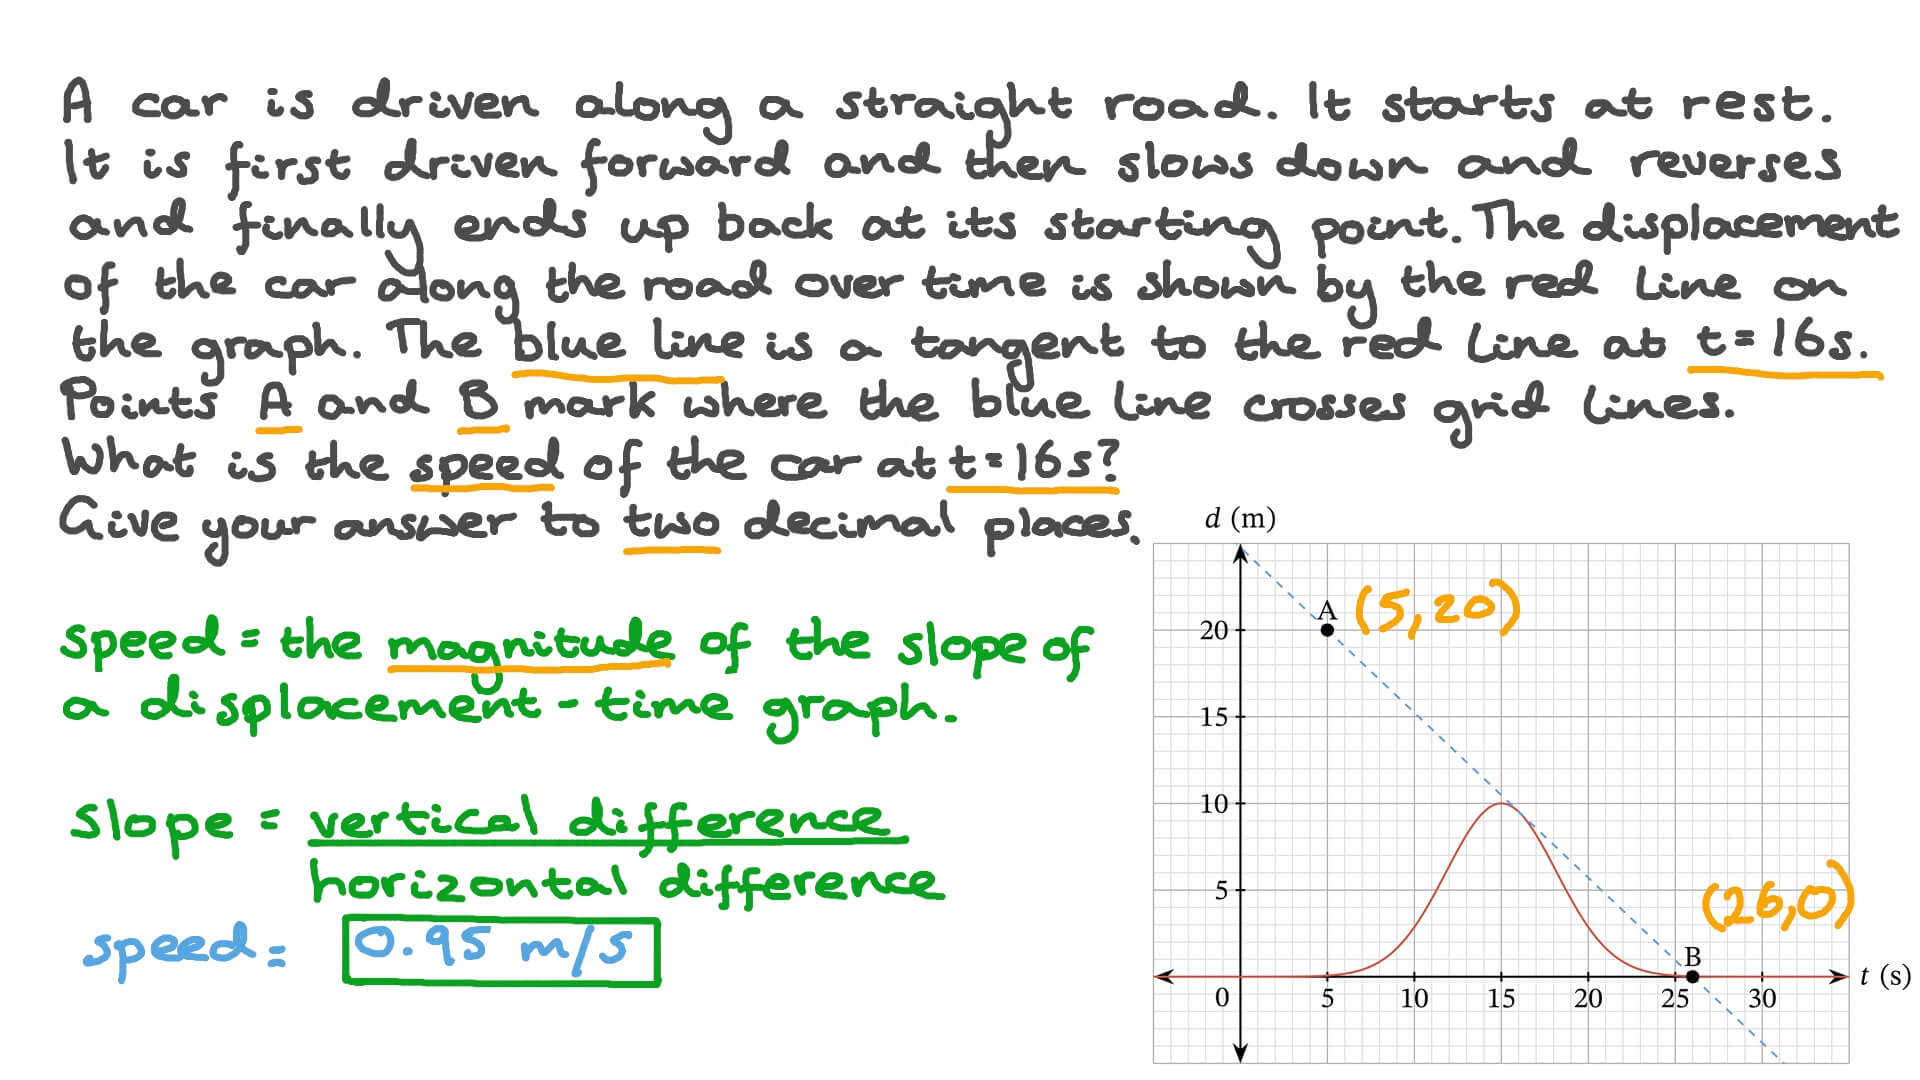 A car is driven along a straight road. It starts at rest.
It is first driven forward and then slows down and reverses
and finally ends up back at its starting point. The displacement
of the car along the road over time is shown by the red line on
the graph. The blue line is a tangent to the red line at t=16s.
Points A and B mark where the blue line crosses grid lines.
What is the speed of the car at t=16s?
Give your answer to two decimal places.
speed = the magnitude of the slope of
a displacement-time graph.
slope = vertical difference
horizontal difference
speed = 0.95 m/s
d (m)
A (5,20)
20
15
10
5
(26,0)
B
t (s)
0 5 10 15 20 25 30